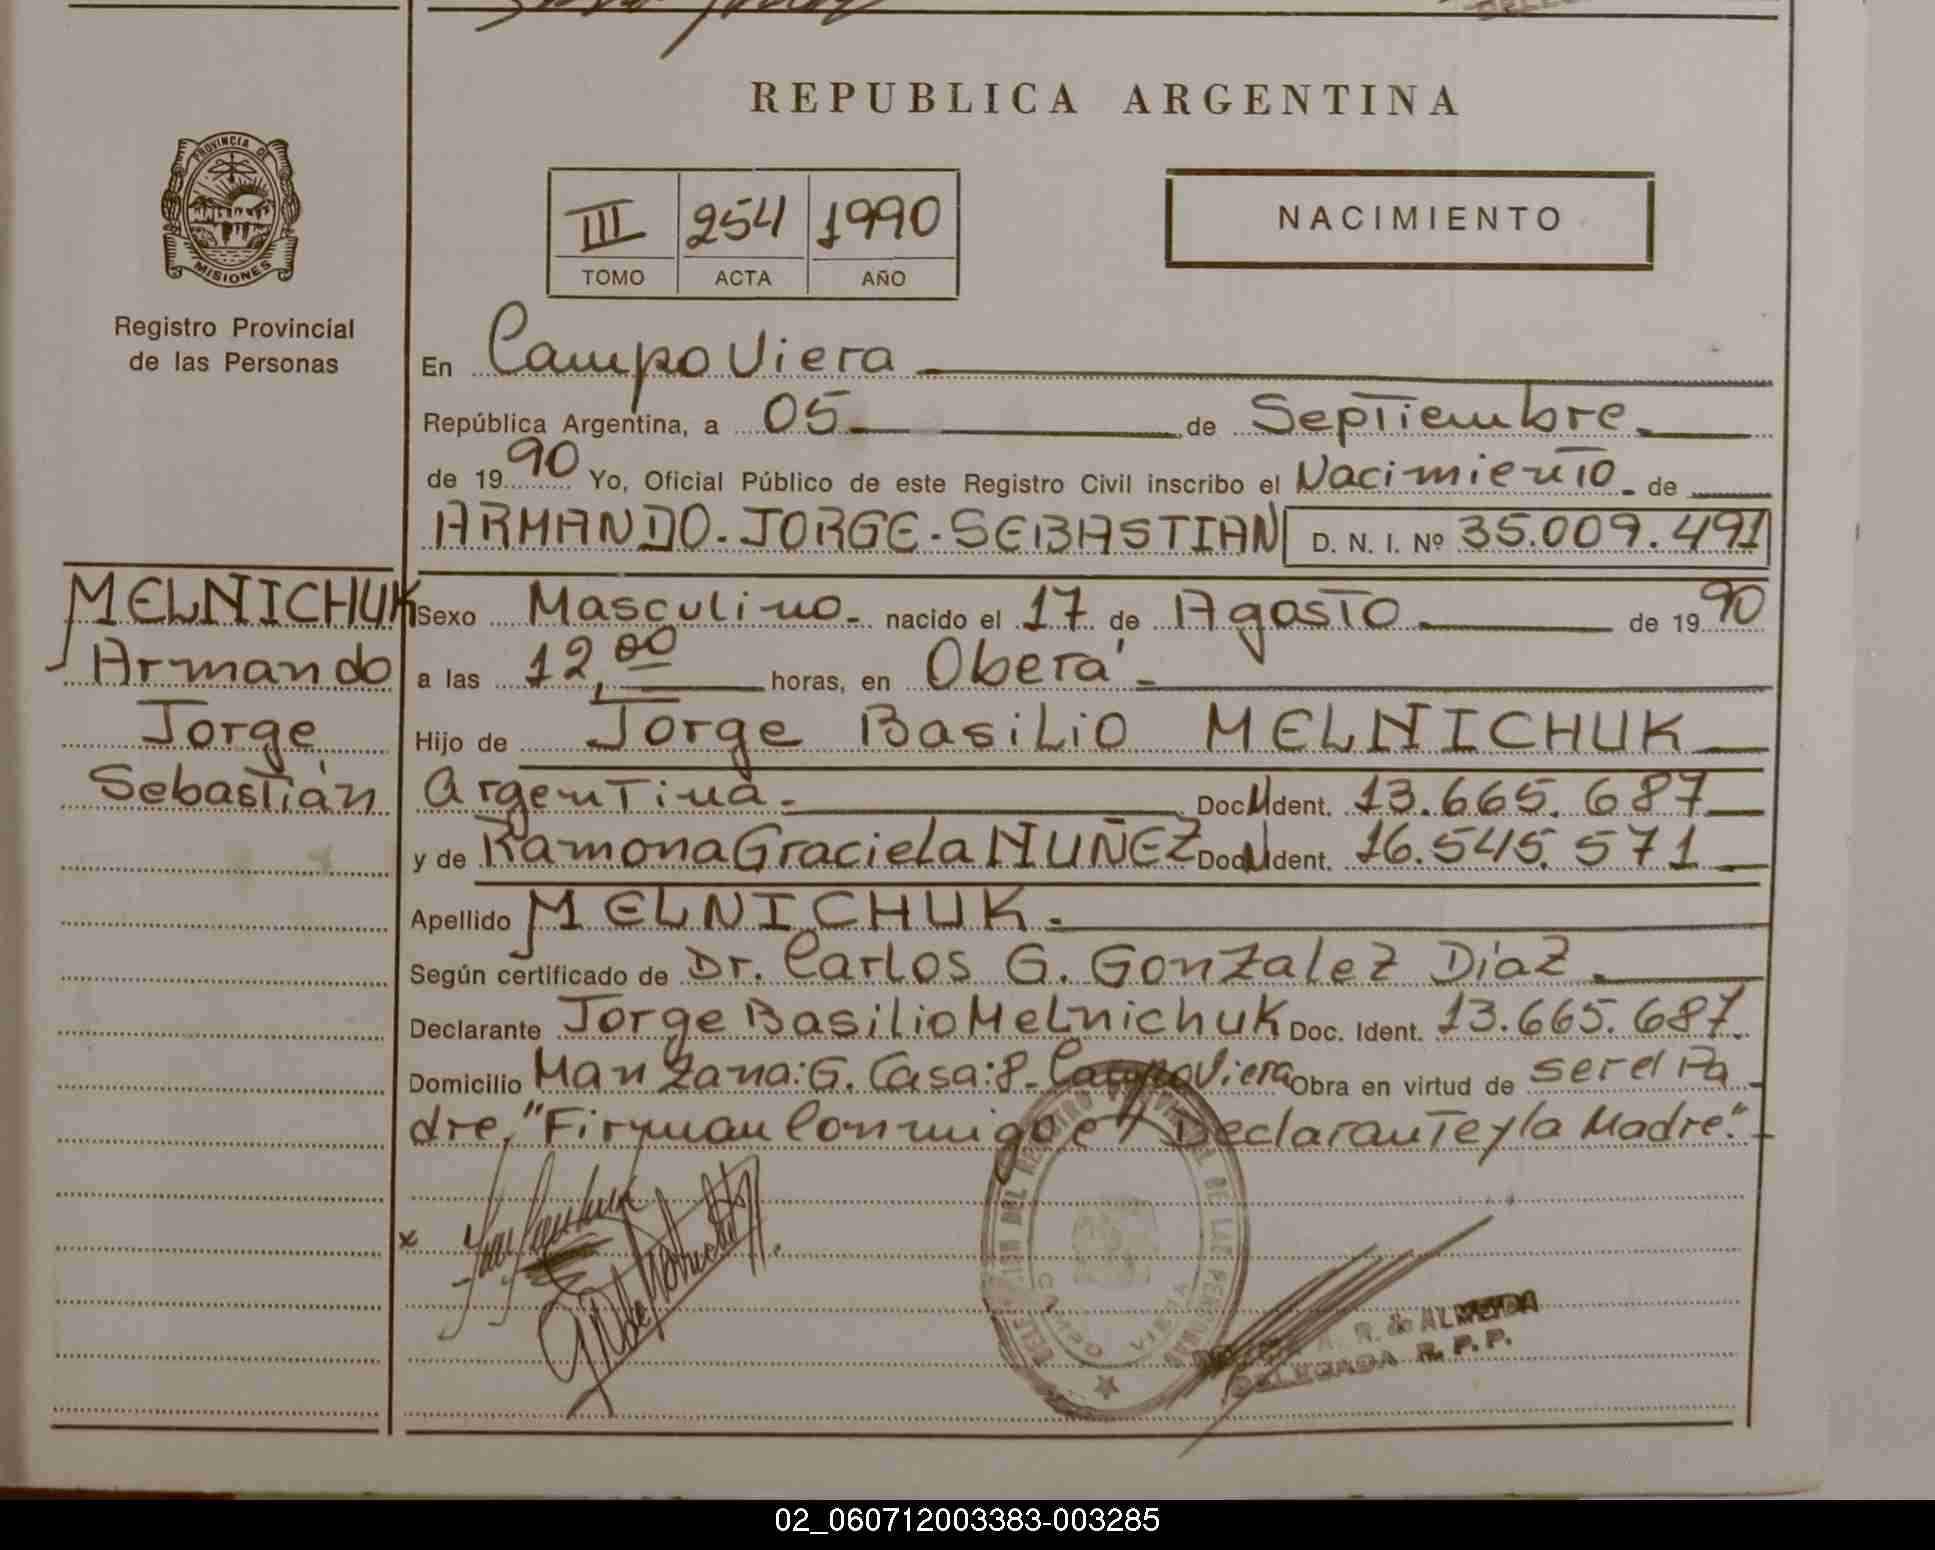 REPUBLICA ARGENTINA
PROVINCIA DE
MISIONES
Registro Provincial
de las Personas
III 254 1990
TOMO ACTA AÑO
NACIMIENTO
En Campo Viera
República Argentina, a 05 de Septiembre
de 1990 Yo, Oficial Público de este Registro Civil inscribo el Nacimiento de
ARMANDO-JORGE-SEBASTIAN D. N. I. Nº 35.009.491
MELNICHUK
Armando
Jorge
Sebastián
Sexo Masculino nacido el 17 de Agosto de 1990
a las 12,00 horas, en Oberá
Hijo de Jorge Basilio MELNICHUK
Argentina Doc. Ident. 13.665.687
y de Ramona Graciela NUÑEZ Doc. Ident. 16.545.571
Apellido MELNICHUK
Según certificado de Dr. Carlos G. GonZaleZ DíaZ
Declarante Jorge Basilio Melnichuk Doc. Ident. 13.665.687
Domicilio ManZana: G. Casa: 8- Campo Viera Obra en virtud de ser el Pa
dre, "Firman Conmigo el Declarante y la Madre."
CAMPO VIERA
R. de ALMEYDA
DELEGADA R. P. P.
02_060712003383-003285